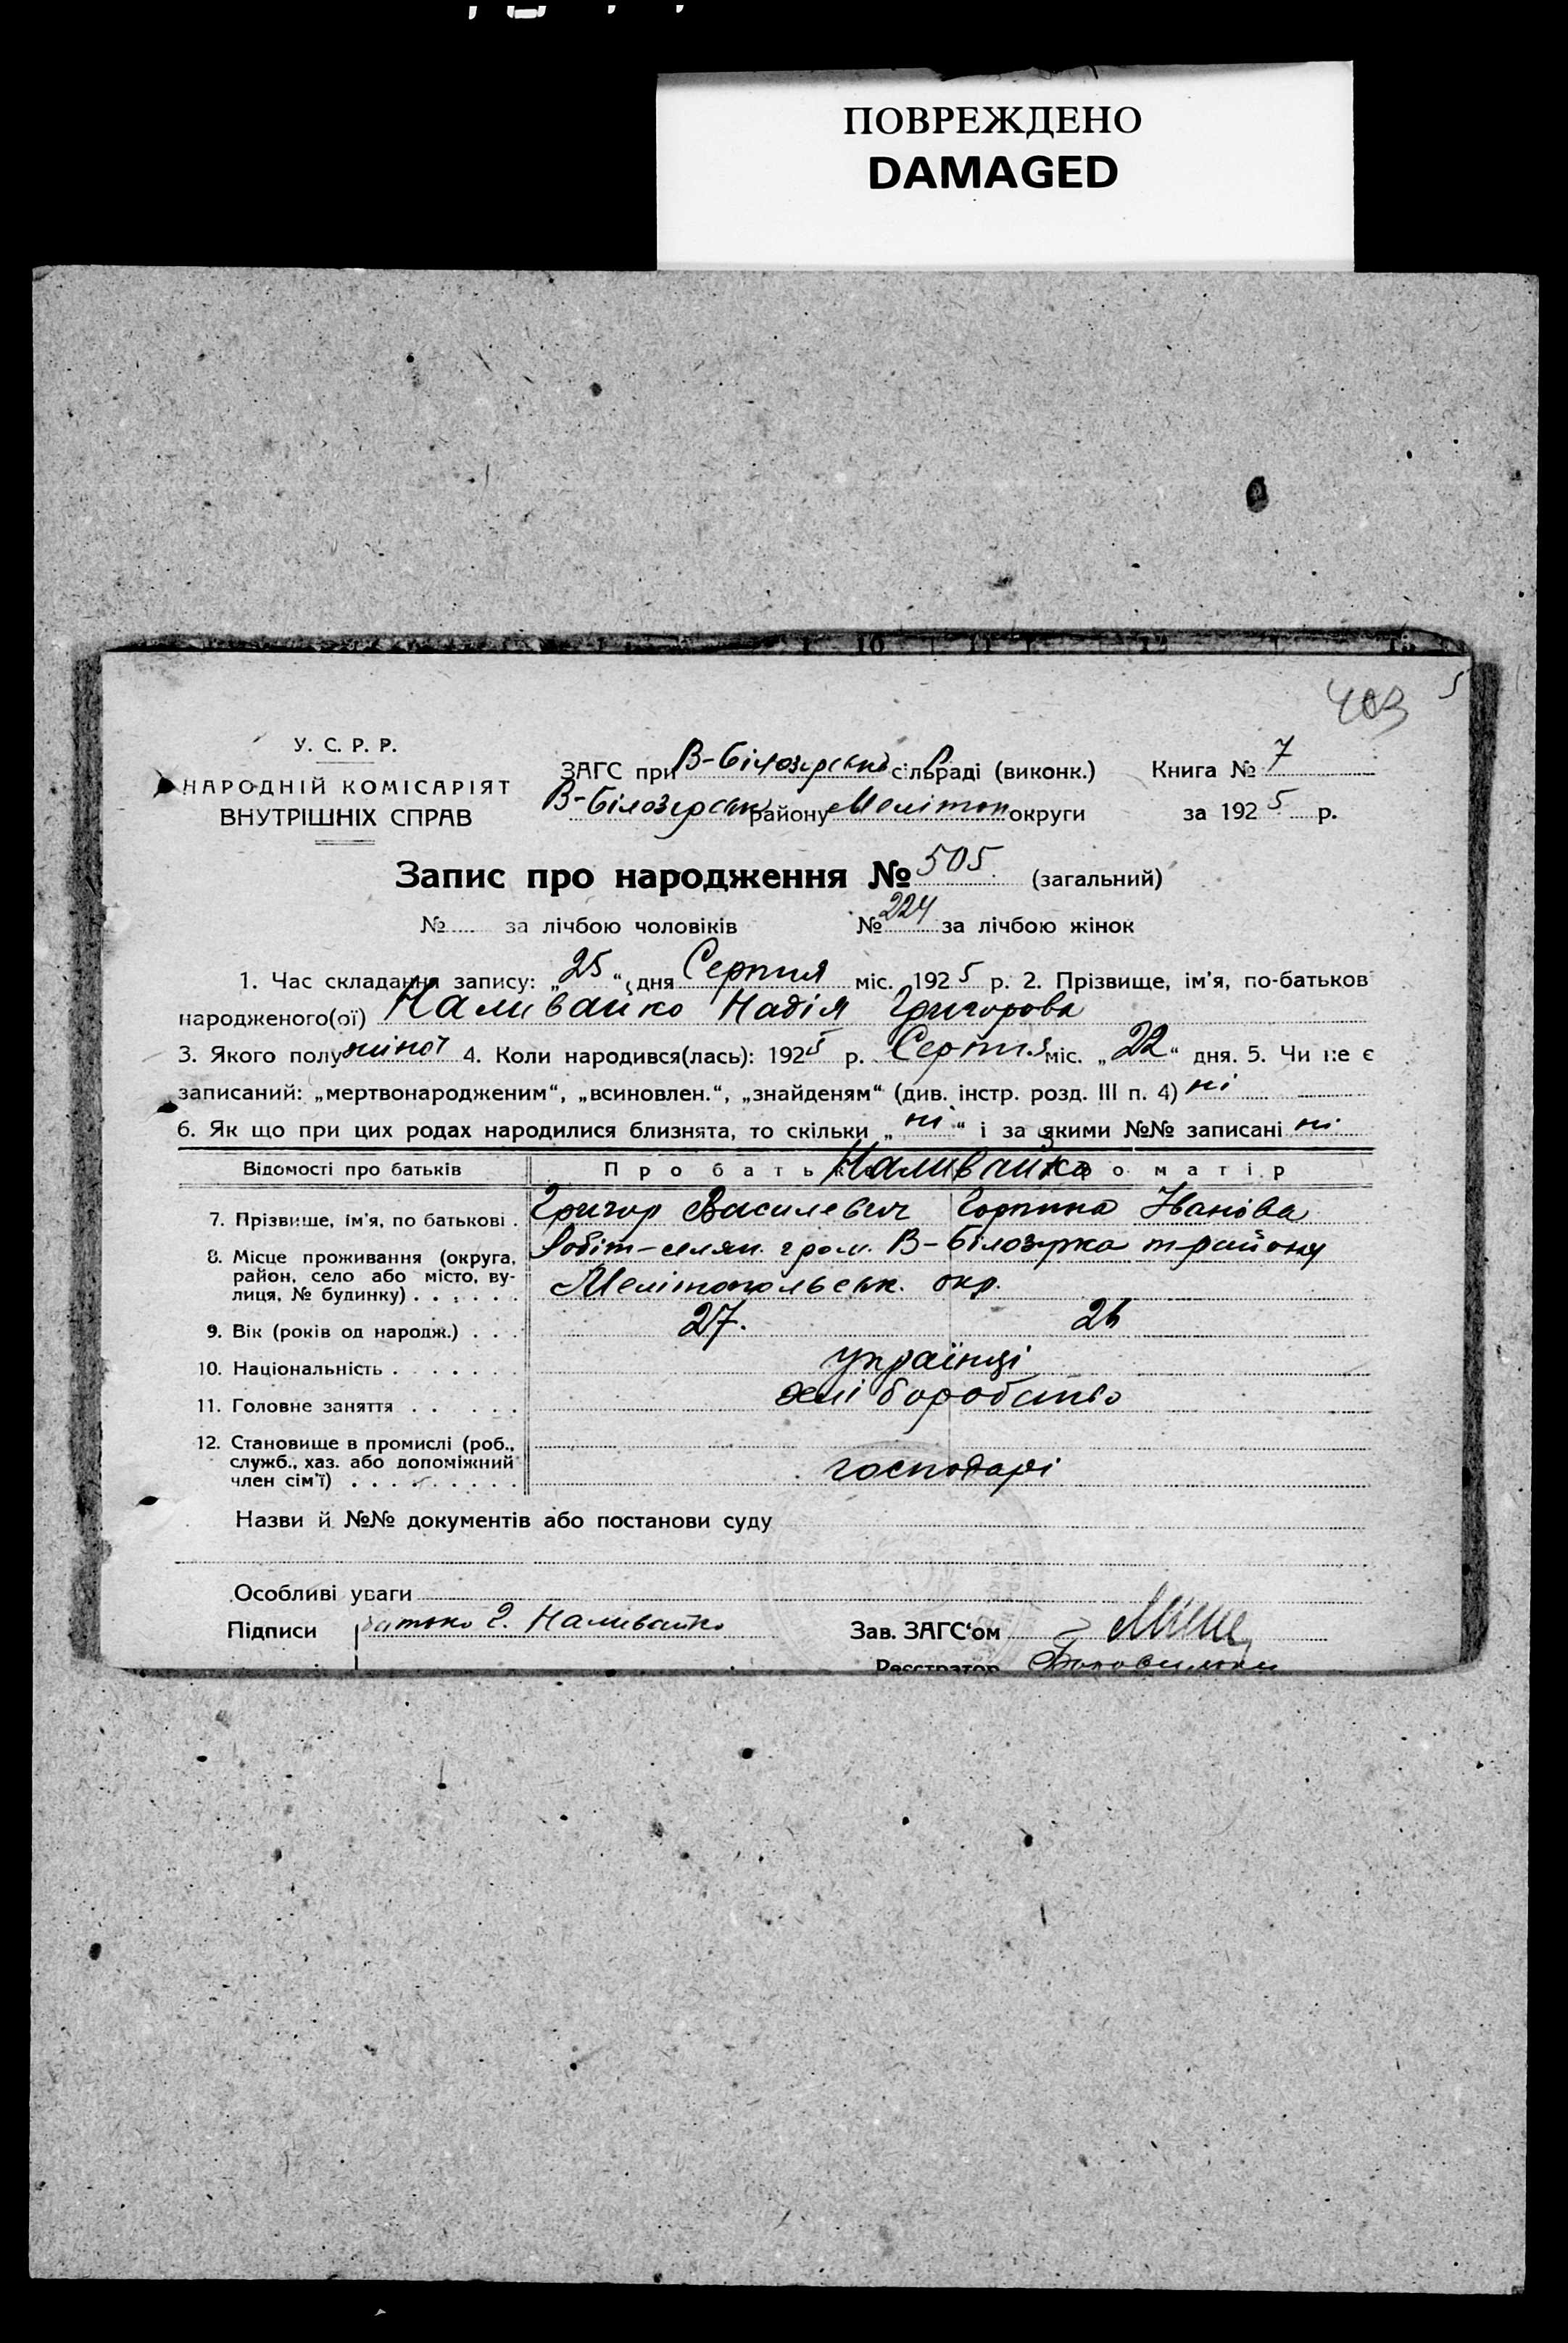 ПОВРЕЖДЕНО
DAMAGED
403
У. С. Р. Р.
НАРОДНІЙ КОМІСАРІЯТ
ВНУТРІШНІХ СПРАВ
ЗАГС при В-Білозерськ сільраді (виконк.) Книга № 7
В-Білозерськ району Мелітоп округи за 1925 р.
Запис про народження № 505. (загальний)
№ за лічбою чоловіків № 224 за лічбою жінок
1. Час складання запису: „25“ дня Серпня міс. 1925 р. 2. Прізвище, ім'я, по-батьков
народженого(ої) Наливайко Надія Григорова
3. Якого полу жіної 4. Коли народився(лась): 1925 р. Серпня міс. „22“ дня. 5. Чи не є
записаний: „мертвонародженим“, „всиновлен.“, „знайденям“ (див. інстр. розд. III п. 4) ні
6. Як що при цих родах народилися близнята, то скільки „ні“ і за якими №№ записані ні
Відомості про батьків Про батька Наливайко Про матір
7. Прізвище, ім'я, по батькові . Григор Василевич Горпина Іванова
8. Місце проживання (округа, Робіт-селян. гром. В-Білозірка т району
район, село або місто, ву-
лиця, № будинку) . . . . . . Мелітопольськ. окр.
9. Вік (років од народж.) . . . 27. 26
10. Національність . . . . . . . українці
11. Головне заняття . . . . . хліборобство
12. Становище в промислі (роб.,
служб., хаз. або допоміжний
член сім'ї) . . . . . . . . . господарі
Назви й №№ документів або постанови суду
Особливі уваги
Підписи батько Г. Наливайко Зав. ЗАГС'ом
Реєстратор